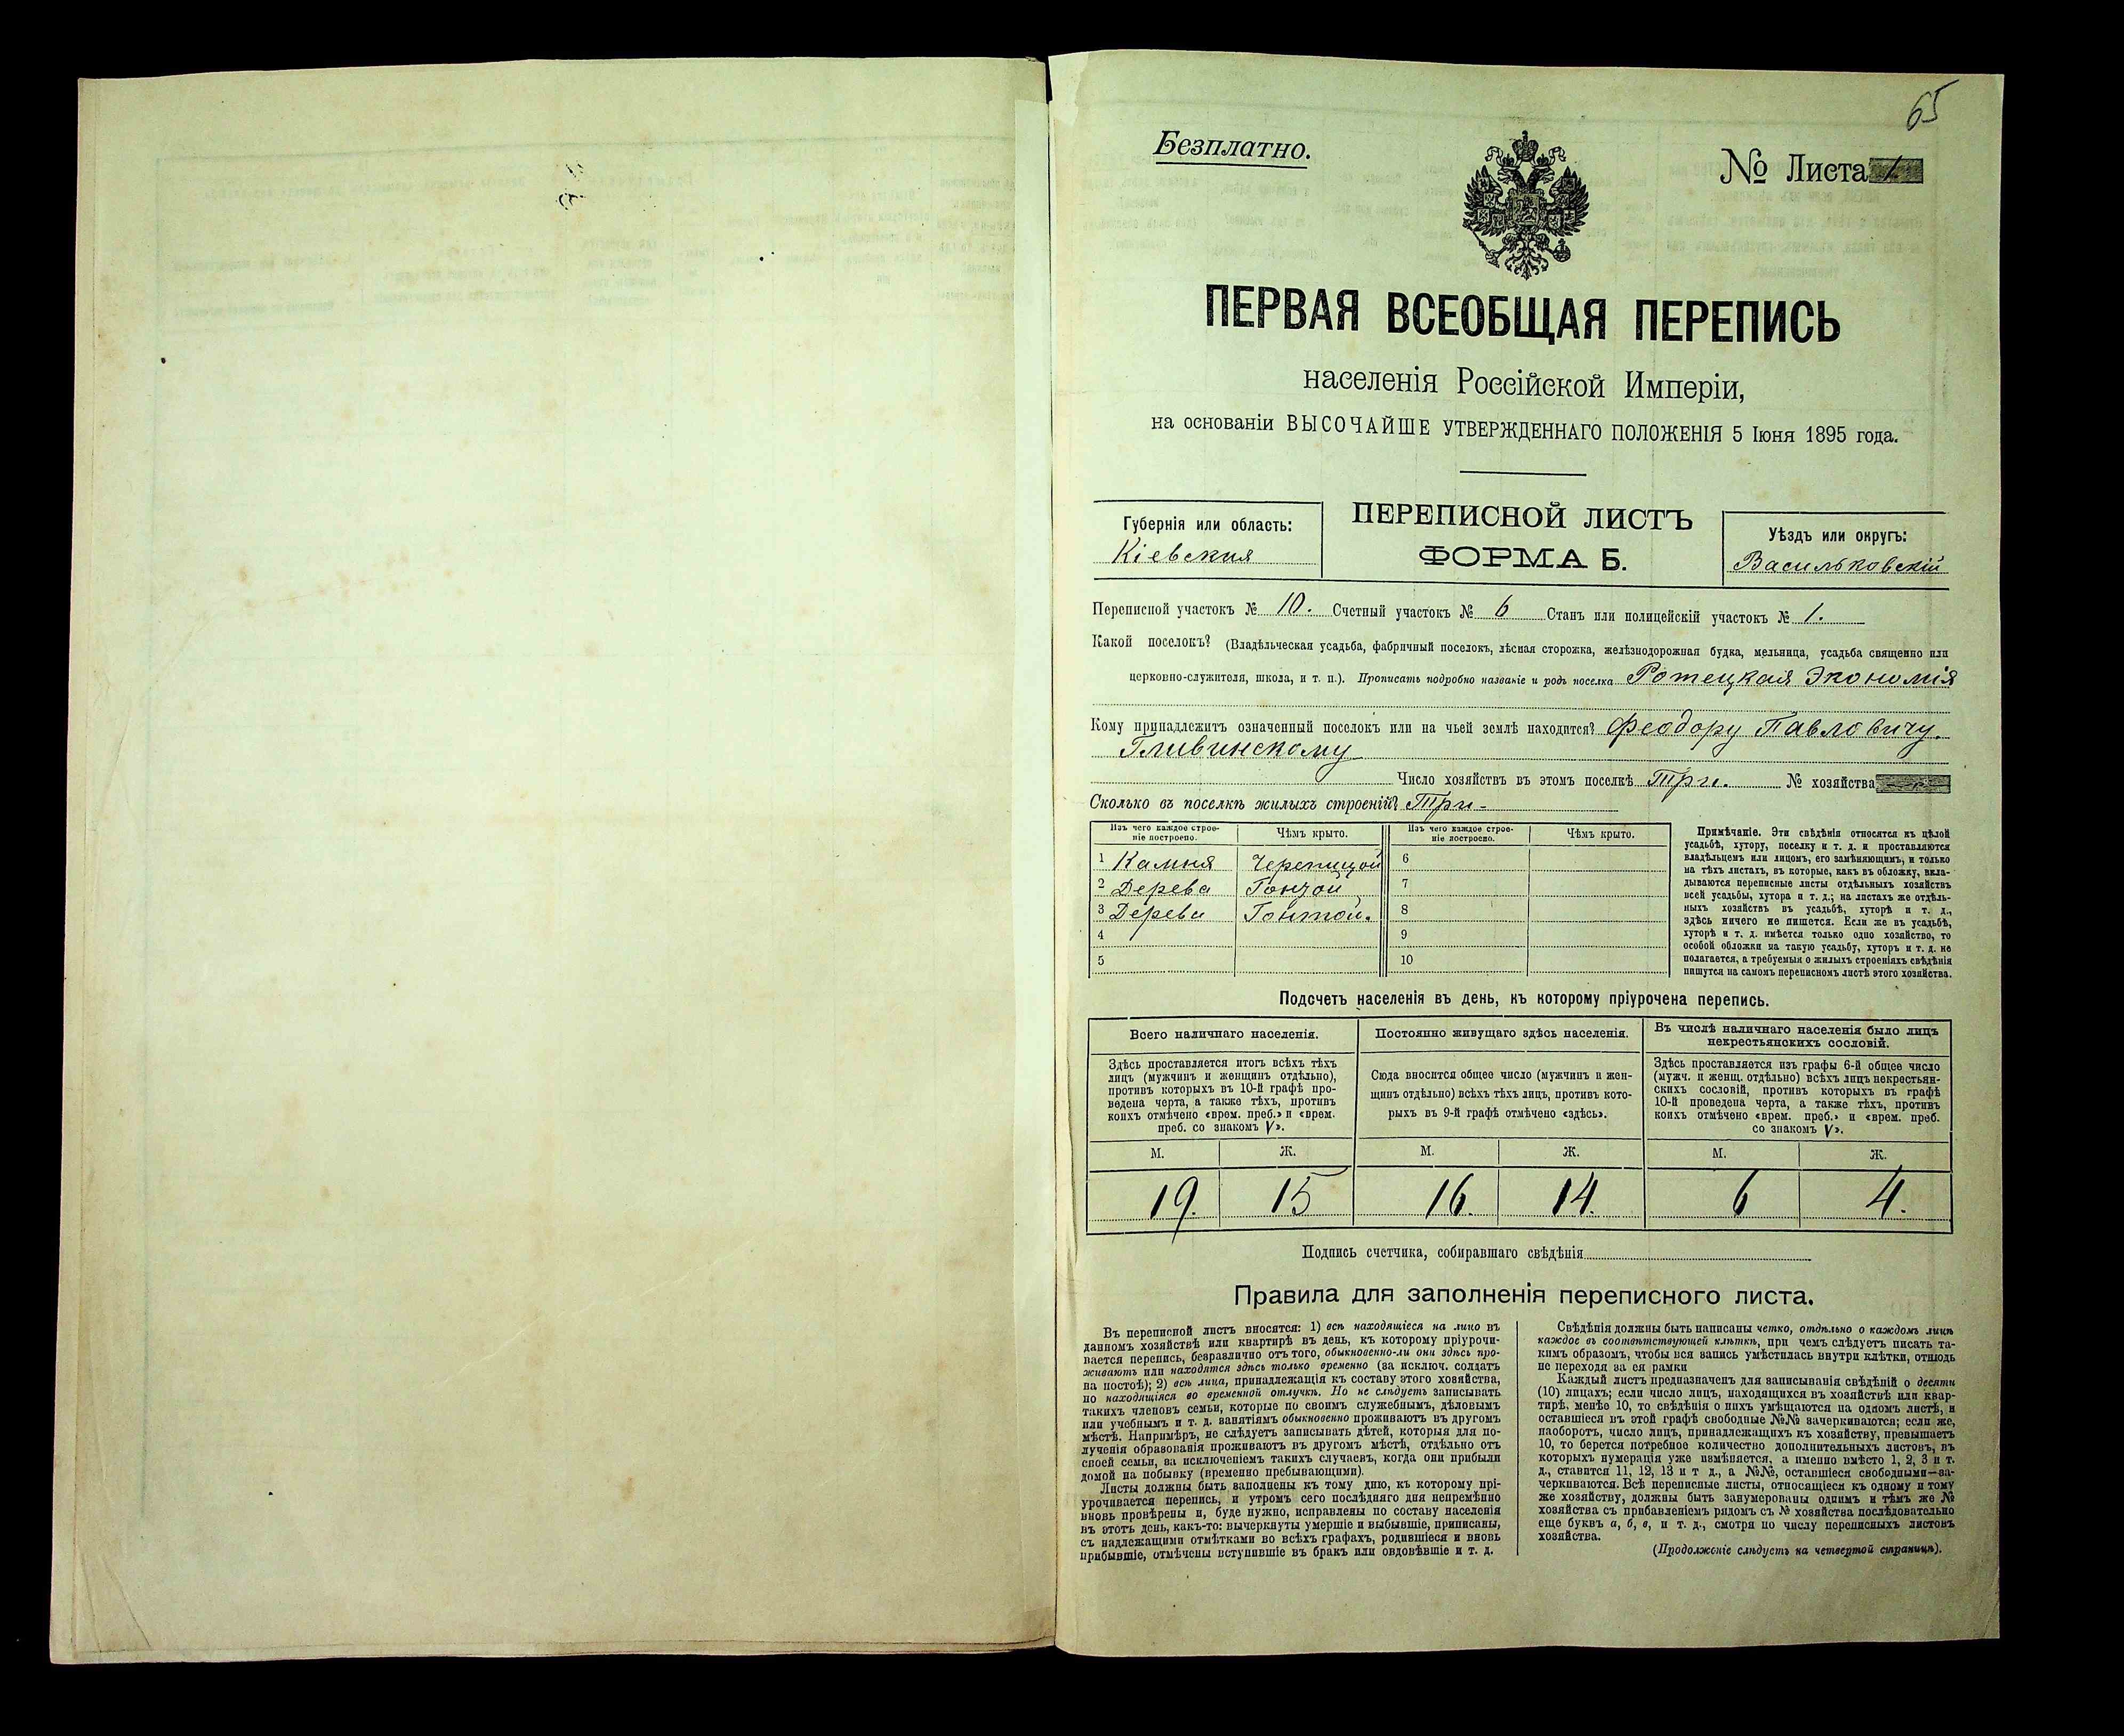 65
Безплатно.
№ Листа 1.
ПЕРВАЯ ВСЕОБЩАЯ ПЕРЕПИСЬ
населенія Россійской Имперіи,
на основаніи ВЫСОЧАЙШЕ УТВЕРЖДЕННАГО ПОЛОЖЕНІЯ 5 Іюня 1895 года.
Губернія или область:
Кіевская
ПЕРЕПИСНОЙ ЛИСТЪ
ФОРМА Б.
Уѣздъ или округъ:
Васильковскій
Переписной участокъ № 10. Счетный участокъ № 6 Станъ или полицейскій участокъ № 1.
Какой поселокъ? (Владѣльческая усадьба, фабричный поселокъ, лѣсная сторожка, желѣзнодорожная будка, мельница, усадьба священно или
церковно-служителя, школа, и т. п.). Прописать подробно названіе и родъ поселка Ротецкая Экономія
Кому принадлежитъ означенный поселокъ или на чьей землѣ находится? Феодору Павловичу.
Гливинскому
Число хозяйствъ въ этомъ поселкѣ Три. № хозяйства
Сколько въ поселкѣ жилыхъ строеній? Три -
Изъ чего каждое строе-
ніе построено.
Чѣмъ крыто.
Изъ чего каждое строе-
ніе построено.
Чѣмъ крыто.
1 Камня Черепицой 6
2 Дерева Гонтой 7
3 Дерева Гонтой. 8
4 9
5 10
Примѣчаніе. Эти свѣдѣнія относятся къ цѣлой
усадьбѣ, хутору, поселку и т. д. и проставляются
владѣльцемъ или лицомъ, его замѣняющимъ, и только
на тѣхъ листахъ, въ которые, какъ въ обложку, вкла-
дываются переписные листы отдѣльныхъ хозяйствъ
всей усадьбы, хутора и т. д.; на листахъ же отдѣль-
ныхъ хозяйствъ въ усадьбѣ, хуторѣ и т. д.,
здѣсь ничего не пишется. Если же въ усадьбѣ,
хуторѣ и т. д. имѣется только одно хозяйство, то
особой обложки на такую усадьбу, хуторъ и т. д. не
полагается, а требуемыя о жилыхъ строеніяхъ свѣдѣнія
пишутся на самомъ переписномъ листѣ этого хозяйства.
Подсчетъ населенія въ день, къ которому пріурочена перепись.
Всего наличнаго населенія.
Здѣсь проставляется итогъ всѣхъ тѣхъ
лицъ (мужчинъ и женщинъ отдѣльно),
противъ которыхъ въ 10-й графѣ про-
ведена черта, а также тѣхъ, противъ
коихъ отмѣчено «врем. преб.» и «врем.
преб. со знакомъ V».
Постоянно живущаго здѣсь населенія.
Сюда вносится общее число (мужчинъ и жен-
щинъ отдѣльно) всѣхъ тѣхъ лицъ, противъ кото-
рыхъ въ 9-й графѣ отмѣчено «здѣсь».
Въ числѣ наличнаго населенія было лицъ
некрестьянскихъ сословій.
Здѣсь проставляется изъ графы 6-й общее число
(мужч. и женщ. отдѣльно) всѣхъ лицъ некрестьян-
скихъ сословій, противъ которыхъ въ графѣ
10-й проведена черта, а также тѣхъ, противъ
коихъ отмѣчено «врем. преб.» и «врем. преб.
со знакомъ V».
М. Ж. М. Ж. М. Ж.
19. 15 16. 14. 6 4.
Подпись счетчика, собиравшаго свѣдѣнія
Правила для заполненія переписного листа.
Въ переписной листъ вносятся: 1) всѣ находящіеся на лицо въ
данномъ хозяйствѣ или квартирѣ въ день, къ которому пріурочи-
вается перепись, безразлично отъ того, обыкновенно-ли они здѣсь про-
живаютъ или находятся здѣсь только временно (за исключ. солдатъ
на постоѣ); 2) всѣ лица, принадлежащія къ составу этого хозяйства,
но находящіяся во временной отлучкѣ. Но не слѣдуетъ записывать
такихъ членовъ семьи, которые по своимъ служебнымъ, дѣловымъ
или учебнымъ и т. д. занятіямъ обыкновенно проживаютъ въ другомъ
мѣстѣ. Напримѣръ, не слѣдуетъ записывать дѣтей, которыя для по-
лученія образованія проживаютъ въ другомъ мѣстѣ, отдѣльно отъ
своей семьи, за исключеніемъ такихъ случаевъ, когда они прибыли
домой на побывку (временно пребывающими).
Листы должны быть заполнены къ тому дню, къ которому прі-
урочивается перепись, и утромъ сего послѣдняго дня непремѣнно
вновь провѣрены и, буде нужно, исправлены по составу населенія
въ этотъ день, какъ-то: вычеркнуты умершіе и выбывшіе, приписаны,
съ надлежащими отмѣтками во всѣхъ графахъ, родившіеся и вновь
прибывшіе, отмѣчены вступившіе въ бракъ или овдовѣвшіе и т. д.
Свѣдѣнія должны быть написаны четко, отдѣльно о каждомъ лицѣ
каждое въ соотвѣтствующей клѣткѣ, при чемъ слѣдуетъ писать та-
кимъ образомъ, чтобы вся запись умѣстилась внутри клѣтки, отнюдь
не переходя за ея рамки
Каждый листъ предназначенъ для записыванія свѣдѣній о десяти
(10) лицахъ; если число лицъ, находящихся въ хозяйствѣ или квар-
тирѣ, менѣе 10, то свѣдѣнія о нихъ умѣщаются на одномъ листѣ, и
оставшіеся въ этой графѣ свободные №№ зачеркиваются; если же,
наоборотъ, число лицъ, принадлежащихъ къ хозяйству, превышаетъ
10, то берется потребное количество дополнительныхъ листовъ, въ
которыхъ нумерація уже измѣняется, а именно вмѣсто 1, 2, 3 и т.
д., ставится 11, 12, 13 и т д., а №№, оставшіеся свободными—за-
черкиваются. Всѣ переписные листы, относящіеся къ одному и тому
же хозяйству, должны быть занумерованы однимъ и тѣмъ же №
хозяйства съ прибавленіемъ рядомъ съ № хозяйства послѣдовательно
еще буквъ а, б, в, и т. д., смотря по числу переписныхъ листовъ
хозяйства.
(Продолженіе слѣдуетъ на четвертой страницѣ).